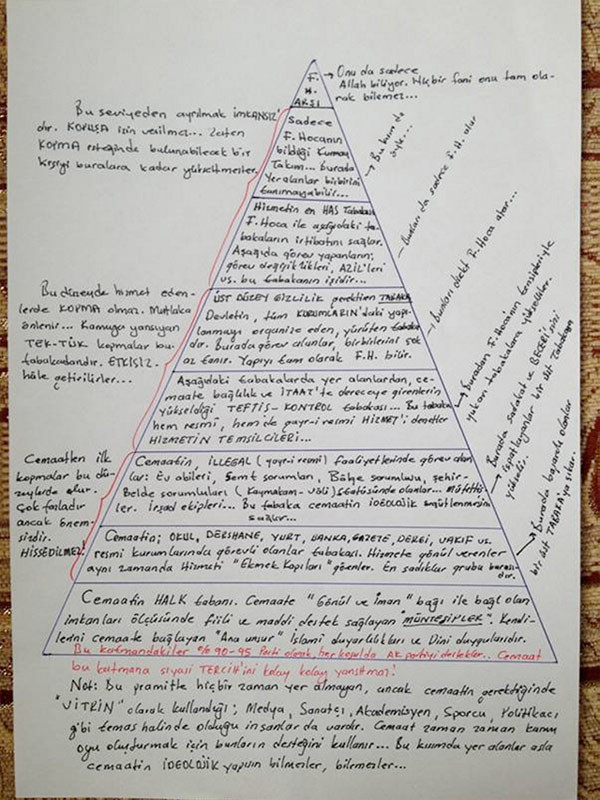 F.
H.
ARŞI
Onu da sadece
Allah biliyor. Hiçbir fani onu tam ola-
rak bilemez...
Bu seviyeden ayrılmak imkansız'
dır. KOPUŞA izin verilmez... Zaten
KOPMA isteğinde bulunabilecek bir
kişiyi buralara kadar yükseltmezler.
Sadece
F. Hocanın
bildiği Kurmay
Takım... burada
Yer alanlar birbirini
tanımayabilir...
Hizmetin en HAS Tabakası
F. Hoca ile aşağıdaki ta-
bakaların irtibatını sağlar.
Aşağıda görev yapanların;
görev değişiklikleri, AZİL'leri
vs. bu tabakanın işidir...
Bunları da sadece F.H. atar
Bu düzeyde hizmet eden-
lerde KOPMA olmaz. Mutlaka
önlenir... Kamuya yansıyan
TEK-TÜK kopmalar bu
tabakadandır. ETKİSİZ-
hale getirilirler...
ÜST DÜZEY GİZLİLİK gerektiren TABAKA
Devletin, tüm KURUMLARIN'daki yapı-
lanmayı organize eden, yürüten tabaka
dır. Burada görev alanlar, birbirlerini çok
az tanır. Yapıyı tam olarak F.H. bilir.
Bunları direkt F. Hoca atar...
Aşağıdaki tabakalarda yer alanlardan, ce-
maate bağlılık ve İTAAT'te dereceye girenlerin
yükseldiği TEFTİŞ-KONTROL tabakası... Bu tabaka
hem resmi, hem de gayr-i resmi HİZMET'i denetler
HİZMETİN TEMSİLCİLERİ...
Buradan F. Hoca'nın tensipleriyle
yukarı tabakalara yükselirler.
Cemaatten ilk
kopmalar bu dü-
zeylerde olur.
Çok fazladır
ancak önem-
sizdir.
HİSSEDİLMEZ!
Cemaatin, İLLEGAL (gayr-i resmi) faaliyetlerinde görev alan
lar: Ev abileri, Semt sorumluları, Bölge sorumlusu, şehir-
Belde sorumluları (Kaymakam-Vali) Statüsünde olanlar... Müfetti-
ler. İrşad ekipleri... Bu tabaka cemaatin İDEOLOJİK
sağlar...
Burada sadakat ve BECERİ'sini
ispatlayanlar bir üst Tabakaya
yükselir.
Cemaatin; OKUL, DERSHANE, YURT, BANKA, GAZETE, DERGİ, VAKIF vs.
resmi kurumlarında görevli olanlar tabakası. Hizmete gönül verenler
aynı zamanda Hizmeti "Ekmek Kapıları" görenler. En sadıklar grubu burası-
dır.
Burada başarılı olanlar
bir üst TABAKA'ya çıkar.
Cemaatin HALK tabanı. Cemaate "Gönül ve İman" bağı ile bağlı olan
imkanları ölçüsünde fiili ve maddi destek sağlayan "MÜNTESİPLER". Kendi-
lerini cemaate bağlayan "Ana unsur" İslami duyarlılıkları ve Dini duygularıdır.
Bu katmandakiler % 90-95 Parti olarak, her koşulda AK partiyi destekler.. Cemaat
bu katmana siyasi TERCİH'ini kolay kolay yansıtmaz!
Not: Bu pramitte hiçbir zaman yer almayan, ancak cemaatin gerektiğinde
"VİTRİN" olarak kullandığı; Medya, Sanatçı, Akademisyen, Sporcu, Politikacı
gibi temas halinde olduğu insanlar da vardır. Cemaat zaman zaman kamu
oyu oluşturmak için bunların desteğini kullanır... Bu kısımda yer alanlar asla
cemaatin İDEOLOJİK yapısın bilmezler, bilemezler...